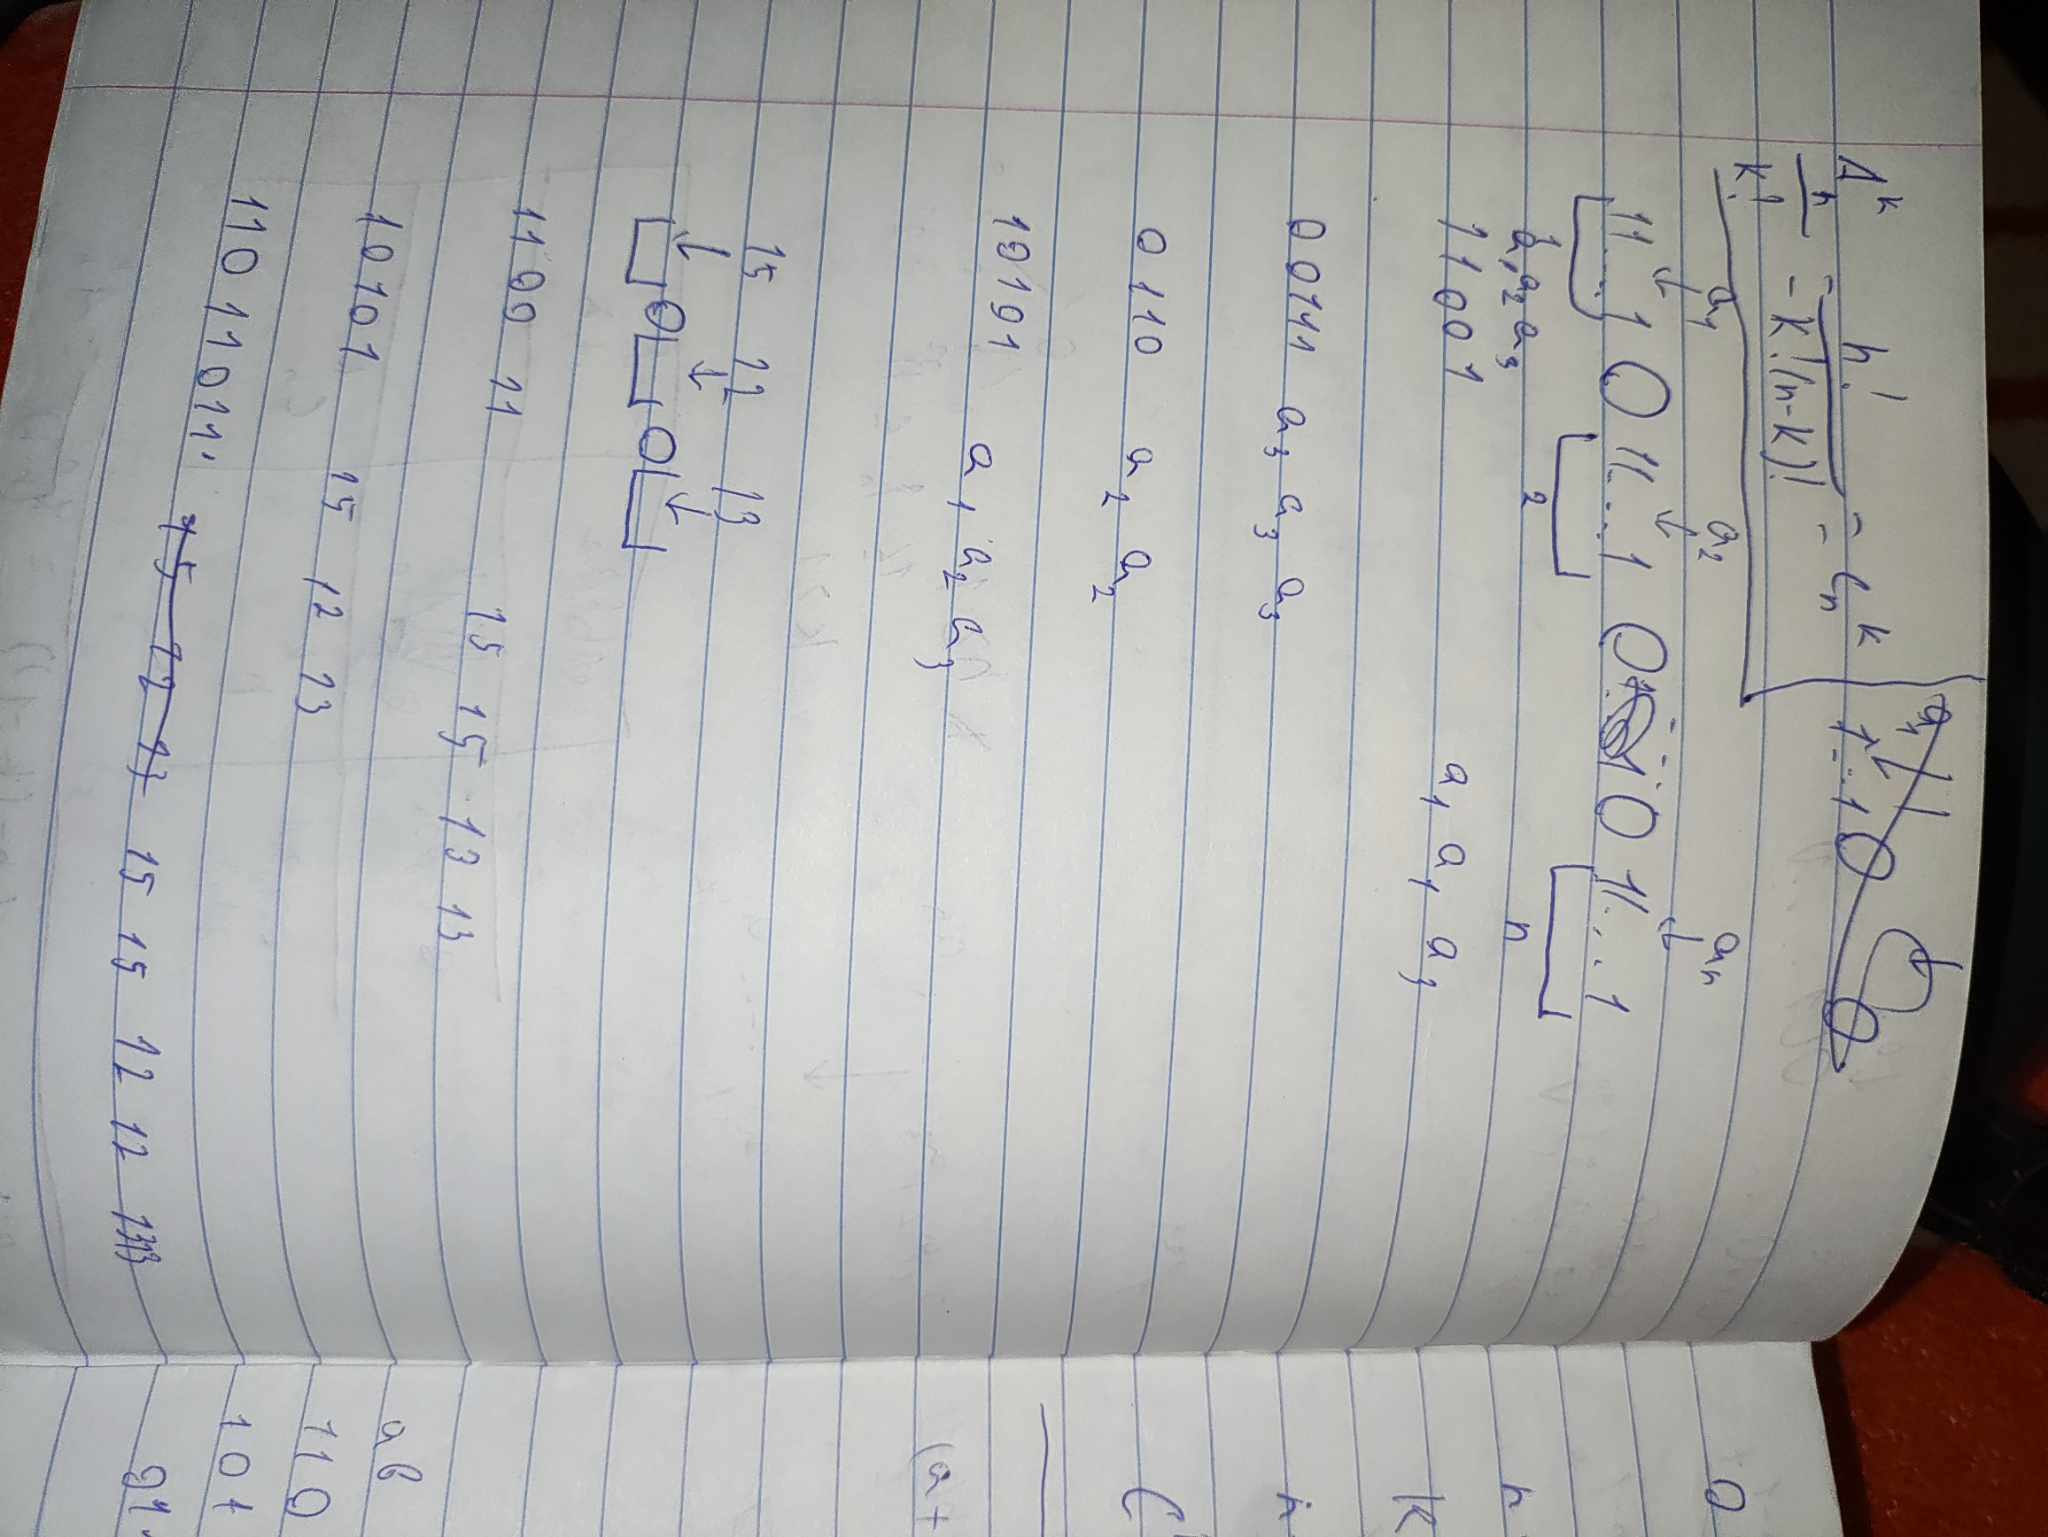 A_n^k / k! = n! / k!(n-k)! = C_n^k
a₁ 1...1 0 0
a₁ a₂ aₙ
11...1 0 11...1 0 ... 0 11...1
1 2 n
a₁ a₂ a₃
11001 a₁ a₁ a₃
00111 a₃ a₃ a₃
0110 a₂ a₂
10101 a₁ a₂ a₃
15 12 13
□0□0□
1100 11 15 15 13 13
10101 15 12 13
11011011, 15 12 13 15 15 12 12 13
0
n
k
n
C
(a+
ab
110
101